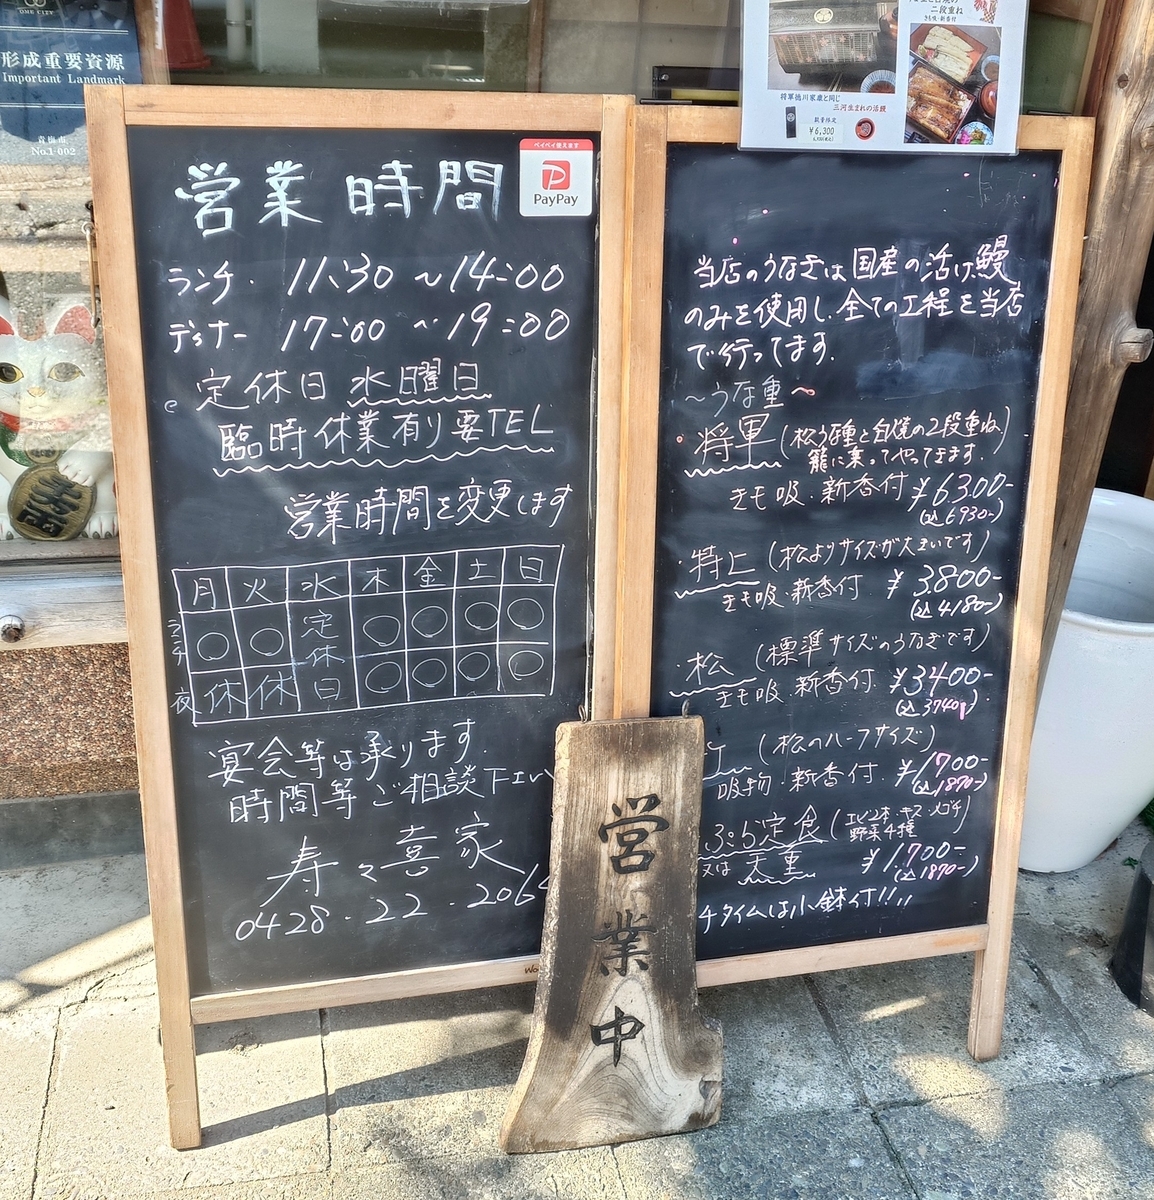 OME CITY
形成重要資源
Important Landmark
青梅市
No.1-002
営業時間
ペイペイ使えます
PayPay
ランチ 11:30 ～14:00
ディナー 17:00 ～19:00
定休日 水曜日
臨時休業有り要TEL
営業時間を変更します
月 火 水 木 金 土 日
ランチ ○ ○ 定休日 ○ ○ ○ ○
夜 休 休 ○ ○ ○ ○
宴会等は承ります.
時間等ご相談下さい
寿々喜家
0428-22-206
二段重ね
きも吸・新香付
将軍徳川家康と同じ
三河生まれの活鰻
数量限定
¥6,300
当店のうなぎは国産の活け鰻
のみを使用し、全ての工程を当店
で行ってます.
～うな重～
・将軍(松うな重と白焼の二段重ね)
籠に乗ってやってきます.
きも吸・新香付 ¥6300-
(込6930-)
・特上(松よりサイズが大きいです)
きも吸・新香付 ¥3800-
(込4180-)
・松(標準サイズのうなぎです)
きも吸・新香付 ¥3400-
(込3740-)
(松のハーフサイズ)
吸物・新香付 ¥1700-
(込1870-)
天ぷら定食(エビ2本・キス・メゴチ)
野菜4種
又は 天重 ¥1700-
(込1870-)
チタイムは小鉢付!!
営業中